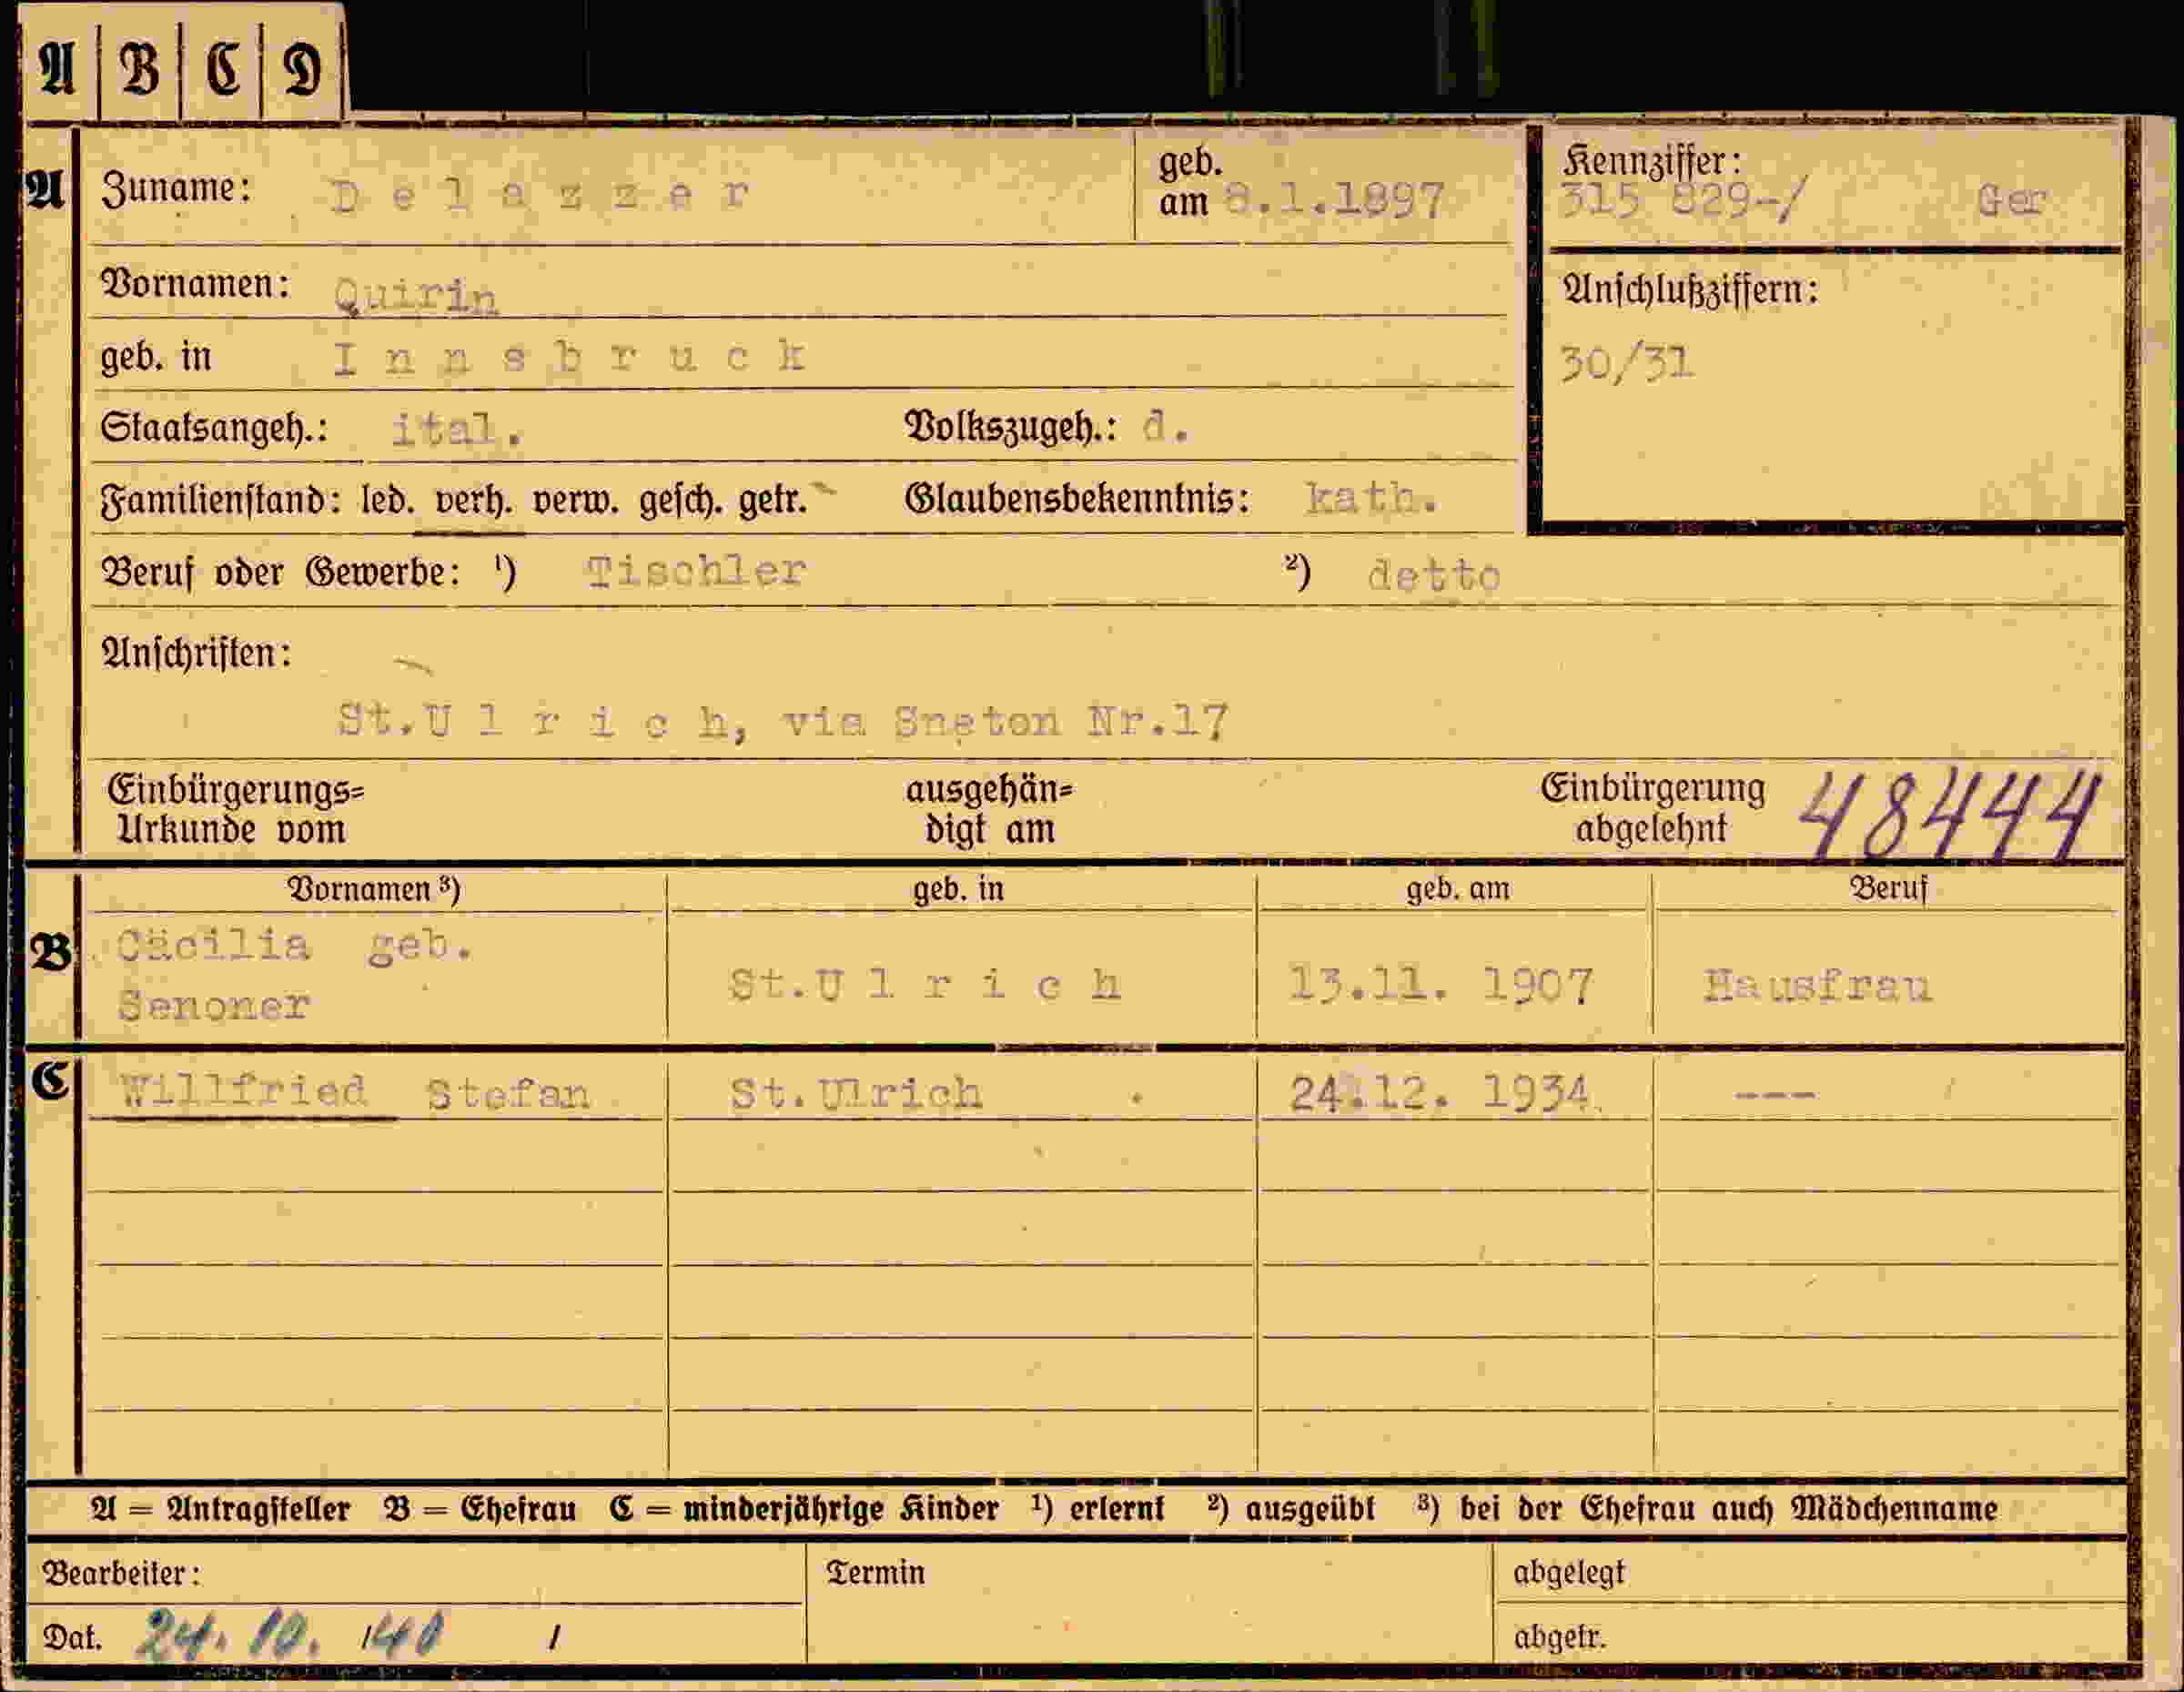 A B C D
A Zuname: Delazzer geb. am 8.1.1897 Kennziffer: 315 829-/ Ger
Vornamen: Quirin Anschlußziffern:
geb. in Innsbruck 30/31
Staatsangeh.: ital. Volkszugeh.: d.
Familienstand: led. verh. verw. gesch. getr. Glaubensbekenntnis: kath.
Beruf oder Gewerbe: ¹) Tischler ²) detto
Anschriften:
St.Ulrich, via Sneton Nr.17
Einbürgerungs= Urkunde vom ausgehän= digt am Einbürgerung abgelehnt 48444
Vornamen ³) geb. in geb. am Beruf
B Cäcilia geb. Senoner St.Ulrich 13.11. 1907 Hausfrau
C Willfried Stefan St.Ulrich 24.12. 1934 ---
A = Antragsteller B = Ehefrau C = minderjährige Kinder ¹) erlernt ²) ausgeübt ³) bei der Ehefrau auch Mädchenname
Bearbeiter: Termin abgelegt
Dat. 24. 10. 40 / abgetr.